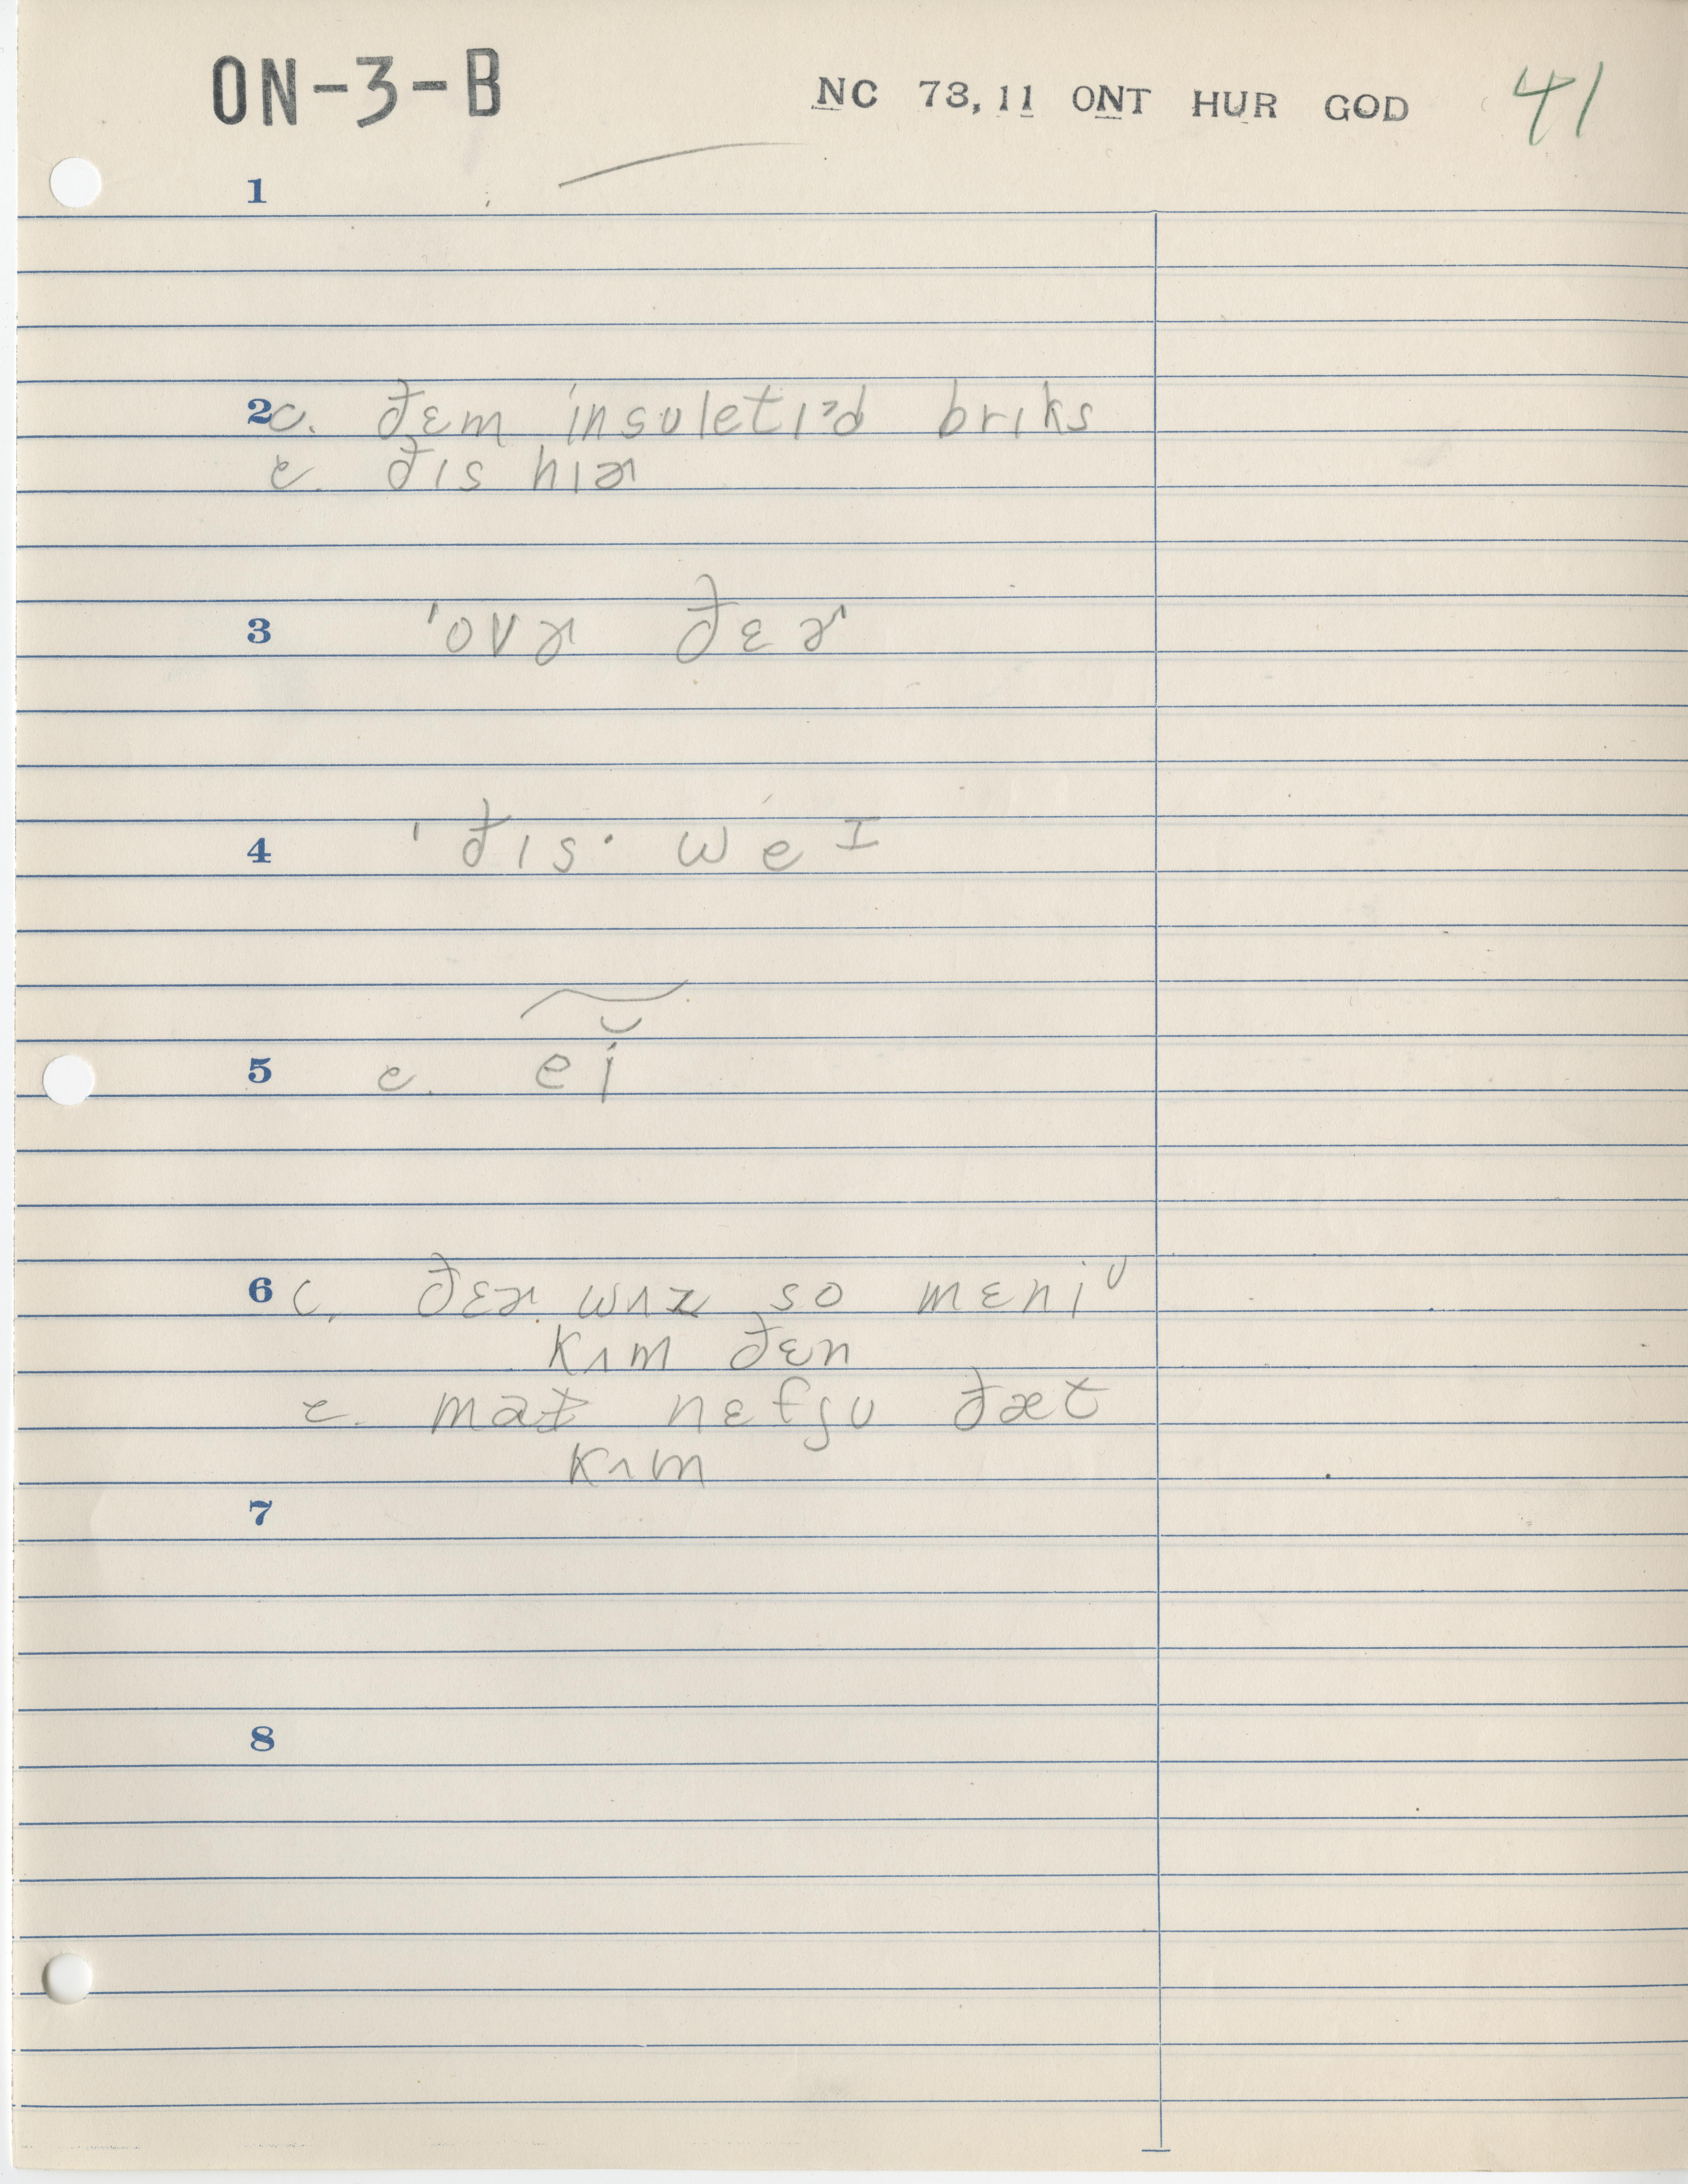 ON-3-B NC 73,11 ONT HUR GOD 41
1 —
2 c. ðɛm ínsuletɪᵊd brɪks
c. ðɪs hɪɚ
3 ˈovɚ ðɛɚ
4 ˈðɪs· weᴵ
5 c. eĭ
6 c. ðɛɚ wʌz so mɛniᵁ
kʌm ðɛn
c. maɪ nɛfju ðæt
kʌm
7
8